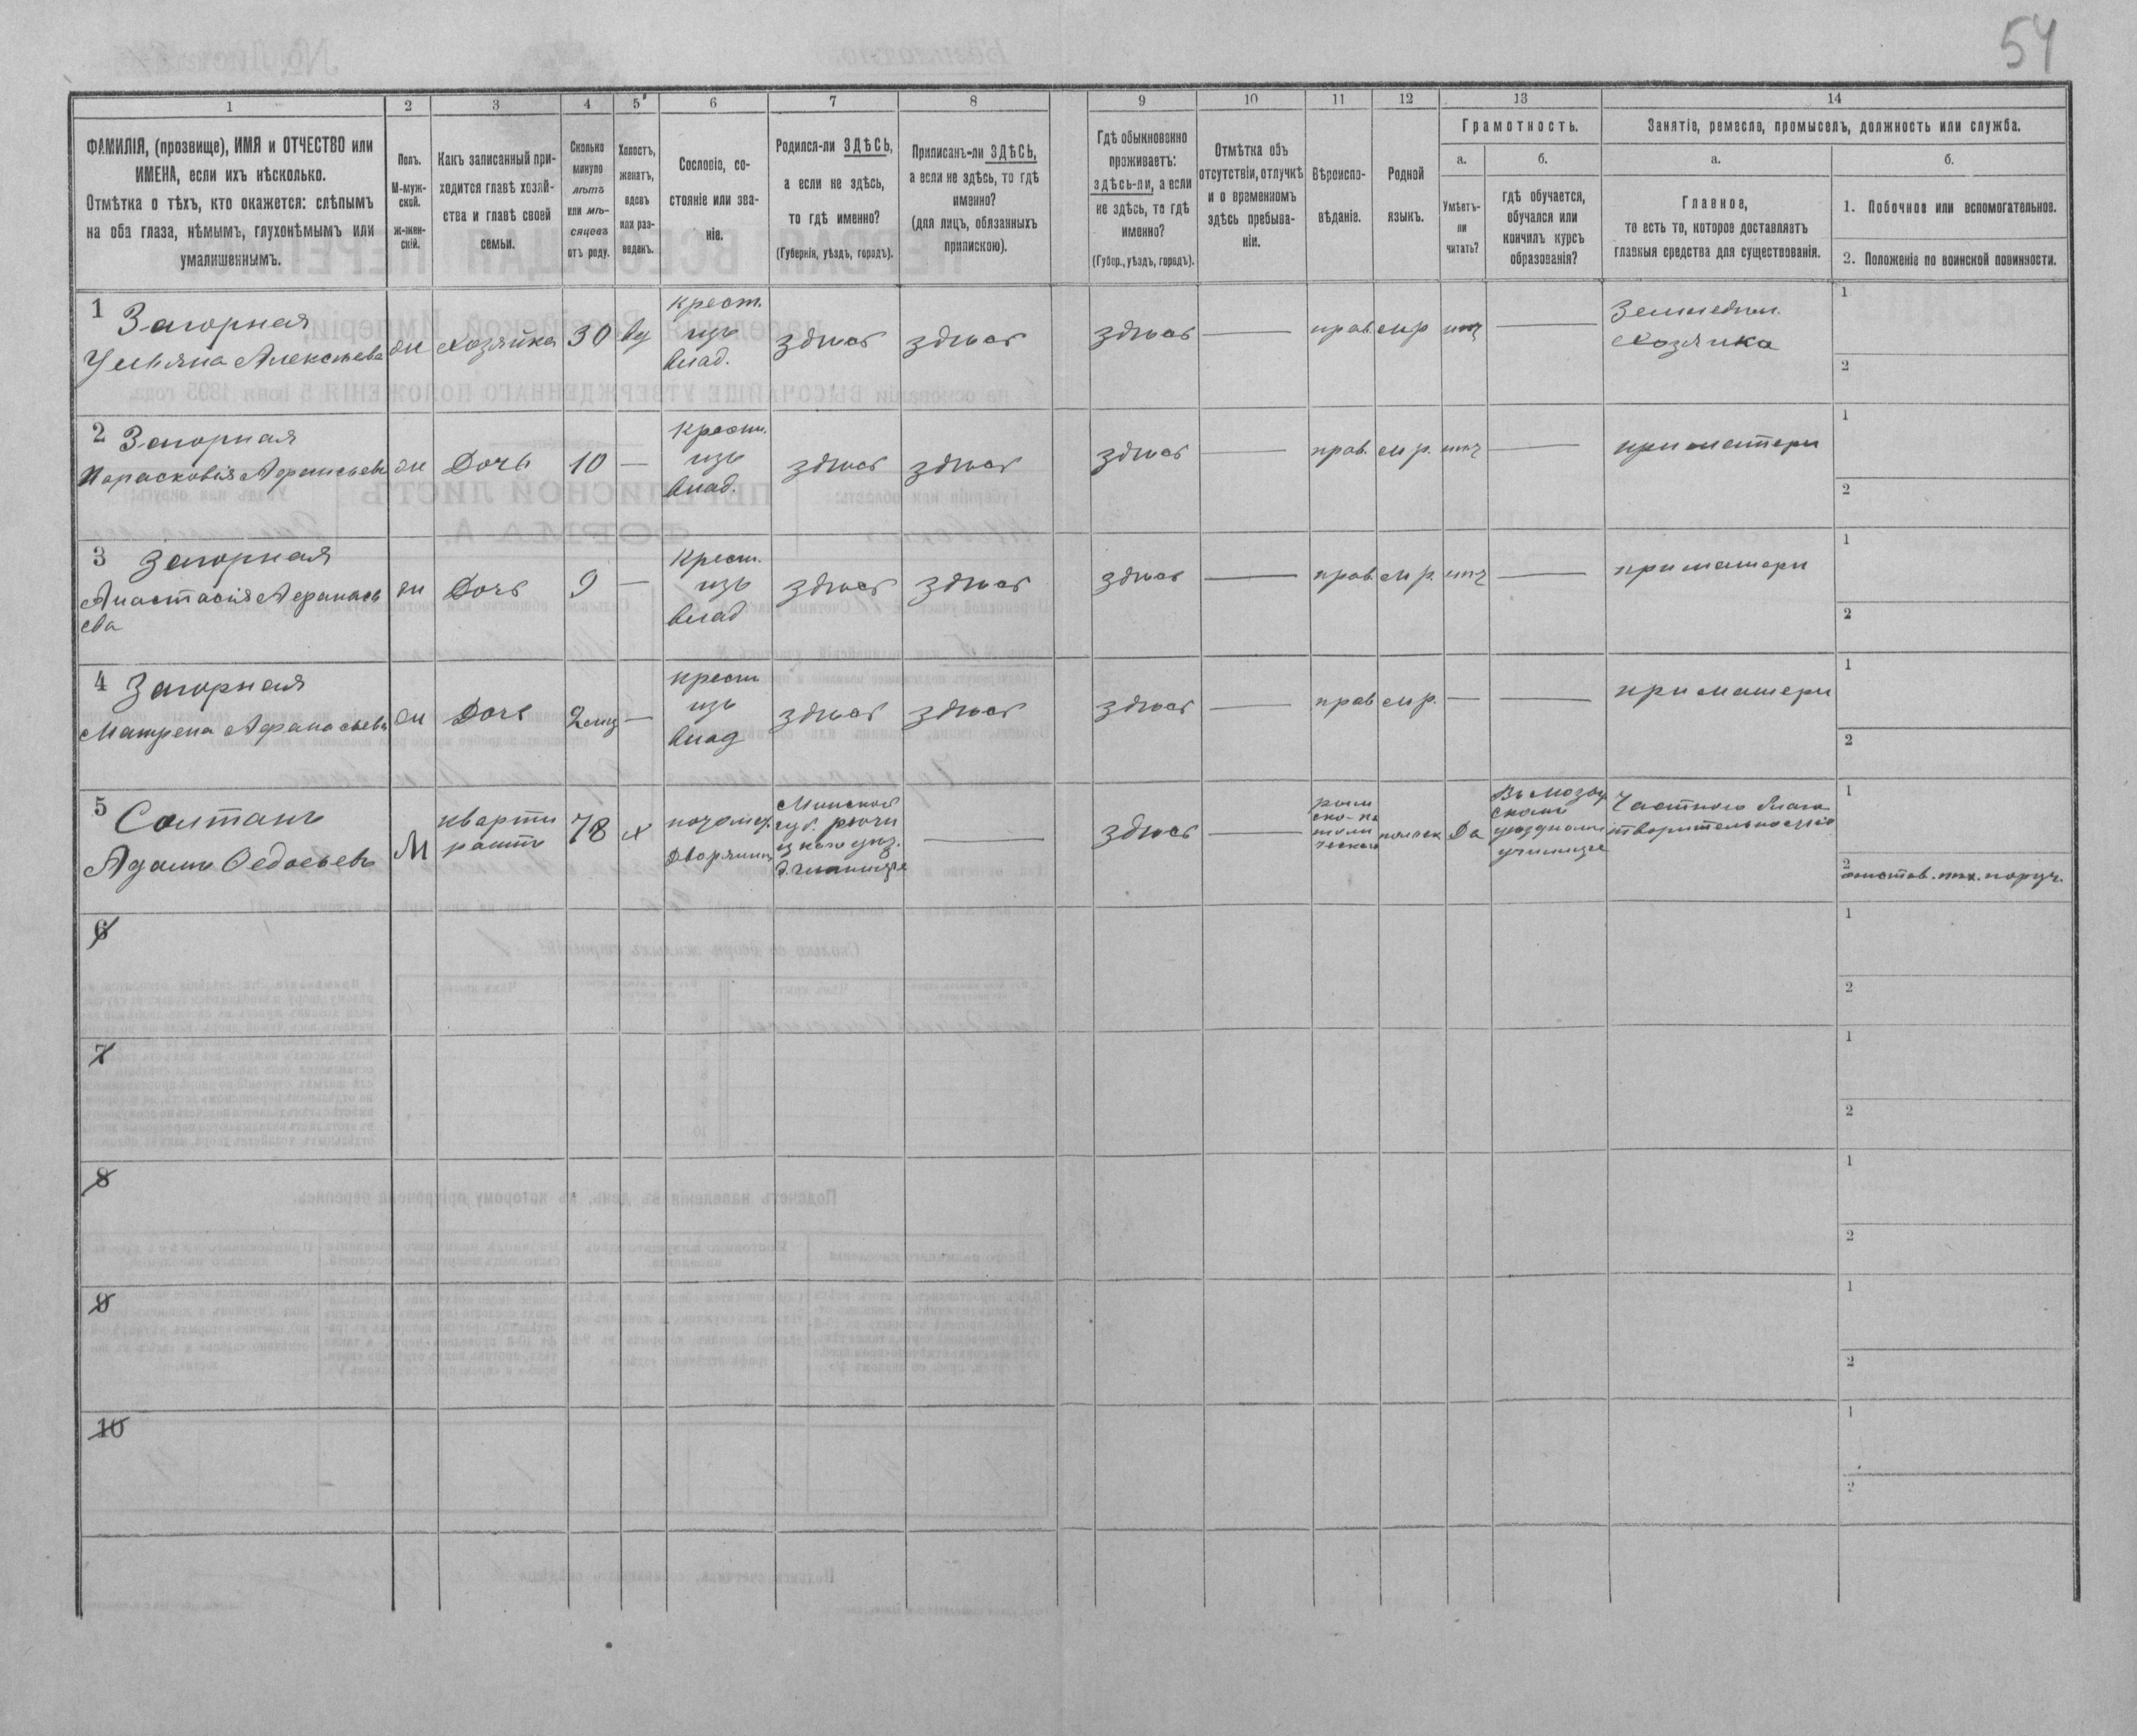 54
1 2 3 4 5 6 7 8 9 10 11 12 13 14
ФАМИЛІЯ, (прозвище), ИМЯ и ОТЧЕСТВО или
ИМЕНА, если ихъ нѣсколько.
Отмѣтка о тѣхъ, кто окажется: слѣпымъ
на оба глаза, нѣмымъ, глухонѣмымъ или
умалишеннымъ.
Полъ.
М-муж-
ской.
Ж-жен-
скій.
Какъ записанный при-
ходится главѣ хозяй-
ства и главѣ своей
семьи.
Сколько
минуло
лѣтъ
или мѣ-
сяцевъ
отъ роду.
Холостъ,
женатъ,
вдовъ
или раз-
веденъ.
Сословіе, со-
стояніе или зва-
ніе.
Родился-ли ЗДѢСЬ,
а если не здѣсь,
то гдѣ именно?
(Губернія, уѣздъ, городъ).
Приписанъ-ли ЗДѢСЬ,
а если не здѣсь, то гдѣ
именно?
(для лицъ, обязанныхъ
припискою).
Гдѣ обыкновенно
проживаетъ:
здѣсь-ли, а если
не здѣсь, то гдѣ
именно?
(Губер., уѣздъ, городъ).
Отмѣтка объ
отсутствіи, отлучкѣ
и о временномъ
здѣсь пребыва-
ніи.
Вѣроиспо-
вѣданіе.
Родной
языкъ.
Грамотность.
а.
Умѣетъ-
ли
читать?
б.
гдѣ обучается,
обучался или
кончилъ курсъ
образованія?
Занятіе, ремесло, промыселъ, должность или служба.
а.
Главное,
то есть то, которое доставляетъ
главныя средства для существованія.
б.
1. Побочное или вспомогательное.
2. Положеніе по воинской повинности.
1 Загорная
Ульяна Алексѣева
ж
Хозяйка
30
вд
крест.
изъ
влад.
здѣсь
здѣсь
здѣсь
—
прав.
м.р.
нѣт
—
Земледѣл.
Хозяйка
1
2
2 Загорная
Парасковія Афанасьева
ж
Дочь
10
—
крест.
изъ
влад.
здѣсь
здѣсь
здѣсь
—
прав.
м.р.
нѣт
—
при матери
1
2
3 Загорная
Анастасія Афанась
ева
ж
Дочь
9
—
крест.
изъ
влад
здѣсь
здѣсь
здѣсь
—
прав.
м.р.
нѣт
—
при матери
1
2
4 Загорная
Матрена Афанасьева
ж
Дочь
2 мц
—
крест
изъ
влад
здѣсь
здѣсь
здѣсь
—
прав
м.р.
—
—
при матери
1
2
5 Солтанъ
Адамъ Федосьевъ
М
кварти
рантъ
78
х
потом.
дворянинъ
Минской
губ. Рѣчи
цкаго уѣз.
—
здѣсь
—
рим
ско-ка
толи
ческаго
польск
Да
Въ Мозыр
скомъ
уѣздномъ
училищѣ
Частного благо
творительностію
1
2
отстав. поруч.
6
1
2
7
1
2
8
1
2
9
1
2
10
1
2